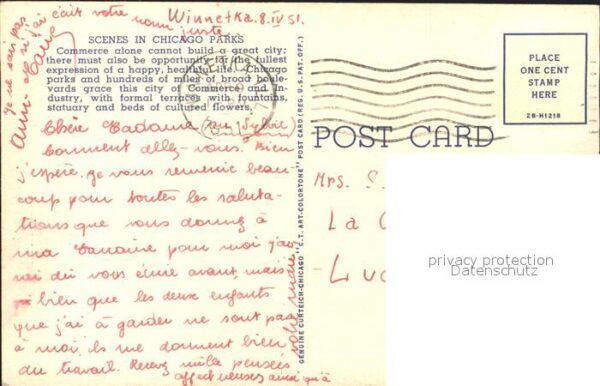 Je ne sais pas
si j'ai écrit votre nom
juste
Winnetka. 8. IV 51.
SCENES IN CHICAGO PARKS
Commerce alone cannot build a great city:
there must also be opportunity for the fullest
expression of a happy, healthful life. Chicago
parks and hundreds of miles of broad boule-
vards grace this city of Commerce and In-
dustry, with formal terraces with fountains,
statuary and beds of cultured flowers.
Chère Madame
Comment allez-vous. Bien
j'espère. Je vous remercie beau-
coup pour toutes les saluta-
tions que vous donnez à
ma pour moi j'au-
rai dû vous écrire avant mais
bien que les deux enfants
que j'ai à garder ne sont pas
à moi ils me donnent bien
du travail. Recevez mille pensées
affectueuses ainsi qu'à
votre
GENUINE CURTEICH-CHICAGO "C.T. ART-COLORTONE" POST CARD (REG. U.S. PAT. OFF.)
POST CARD
PLACE
ONE CENT
STAMP
HERE
2B-H1218
Mrs. S.
La
Lu
privacy protection
Datenschutz